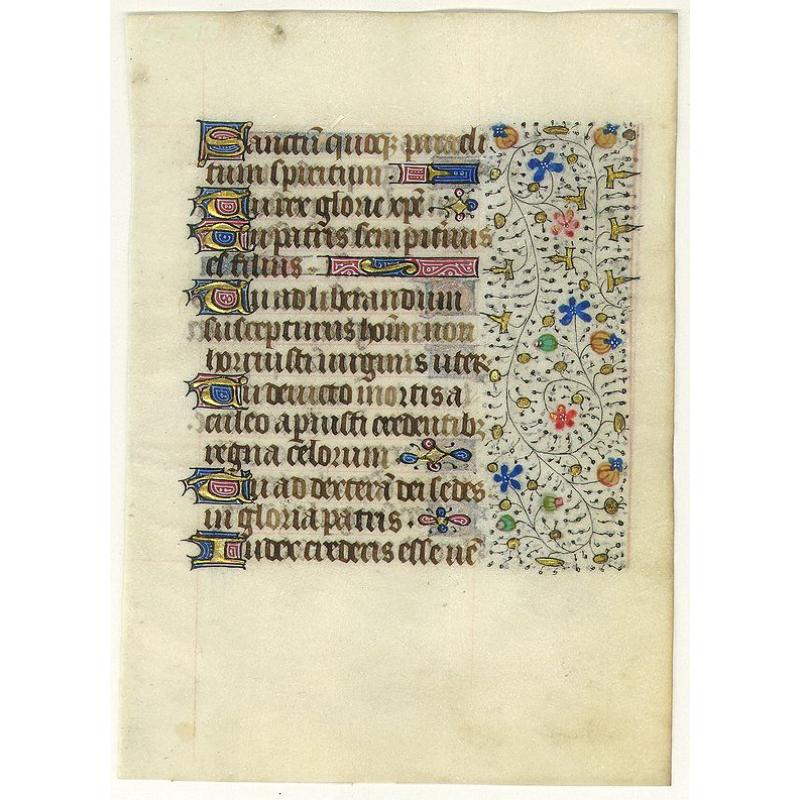 Sanctū quoqꝫ paracli
tum spiritum
Tu rex glorie xp̄e
Tu patris sempit̄nus
es filius
Tu ad liberandum
suscepturus hoīem non
horruisti virginis uter
Tu devicto mortis a
culeo apruisti credentibꝫ
regna celorum
Tu ad dexterā dei sedes
in gloria patris .
Iudex crederis esse uē